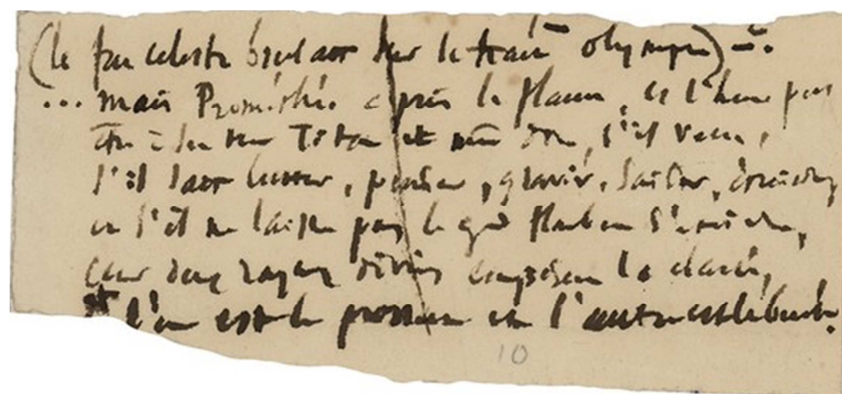 (le feu céleste brûlait sur le haut olympe) —.
... mais Prométhée a pris la flamme, et l'homme peut
être à son tour Titan et même dieu, s'il veut,
s'il sait lutter, penser, gravir, saisir,
et s'il ne laisse pas le grand flambeau s'éteindre,
car deux rayons divins composent la clarté,
et l'un est le et l'autre est le but.